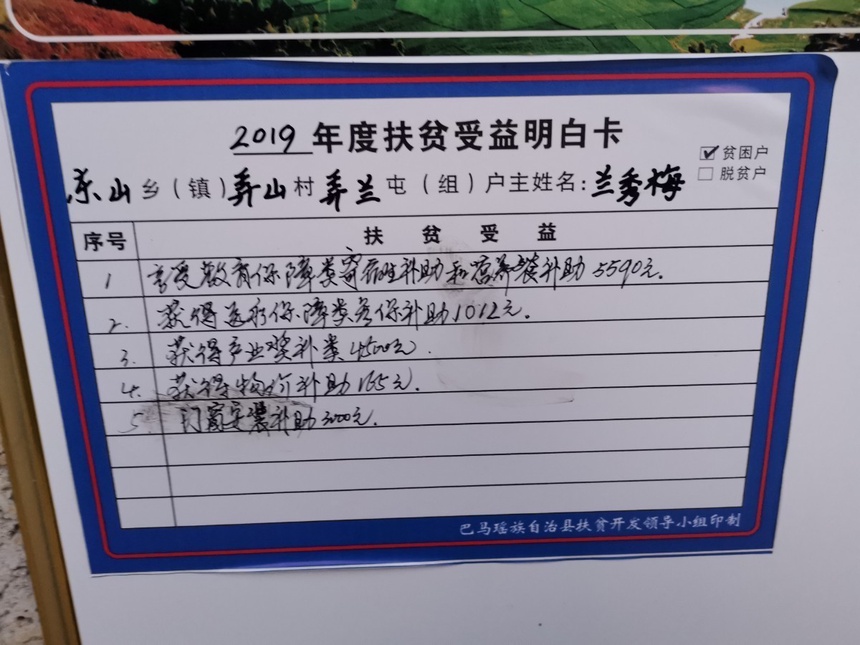 2019 年度扶贫受益明白卡
☑ 贫困户
☐ 脱贫户
东山 乡（镇）弄山 村 弄兰 屯（组）户主姓名：兰秀梅
序号 扶贫受益
1 享受教育保障类寄宿生补助和营养餐补助5590元.
2. 获得医疗保障类参保补助1012元.
3. 获得产业奖补类4500元.
4. 获得物价补助165元.
5 门窗安装补助3000元.
巴马瑶族自治县扶贫开发领导小组印制